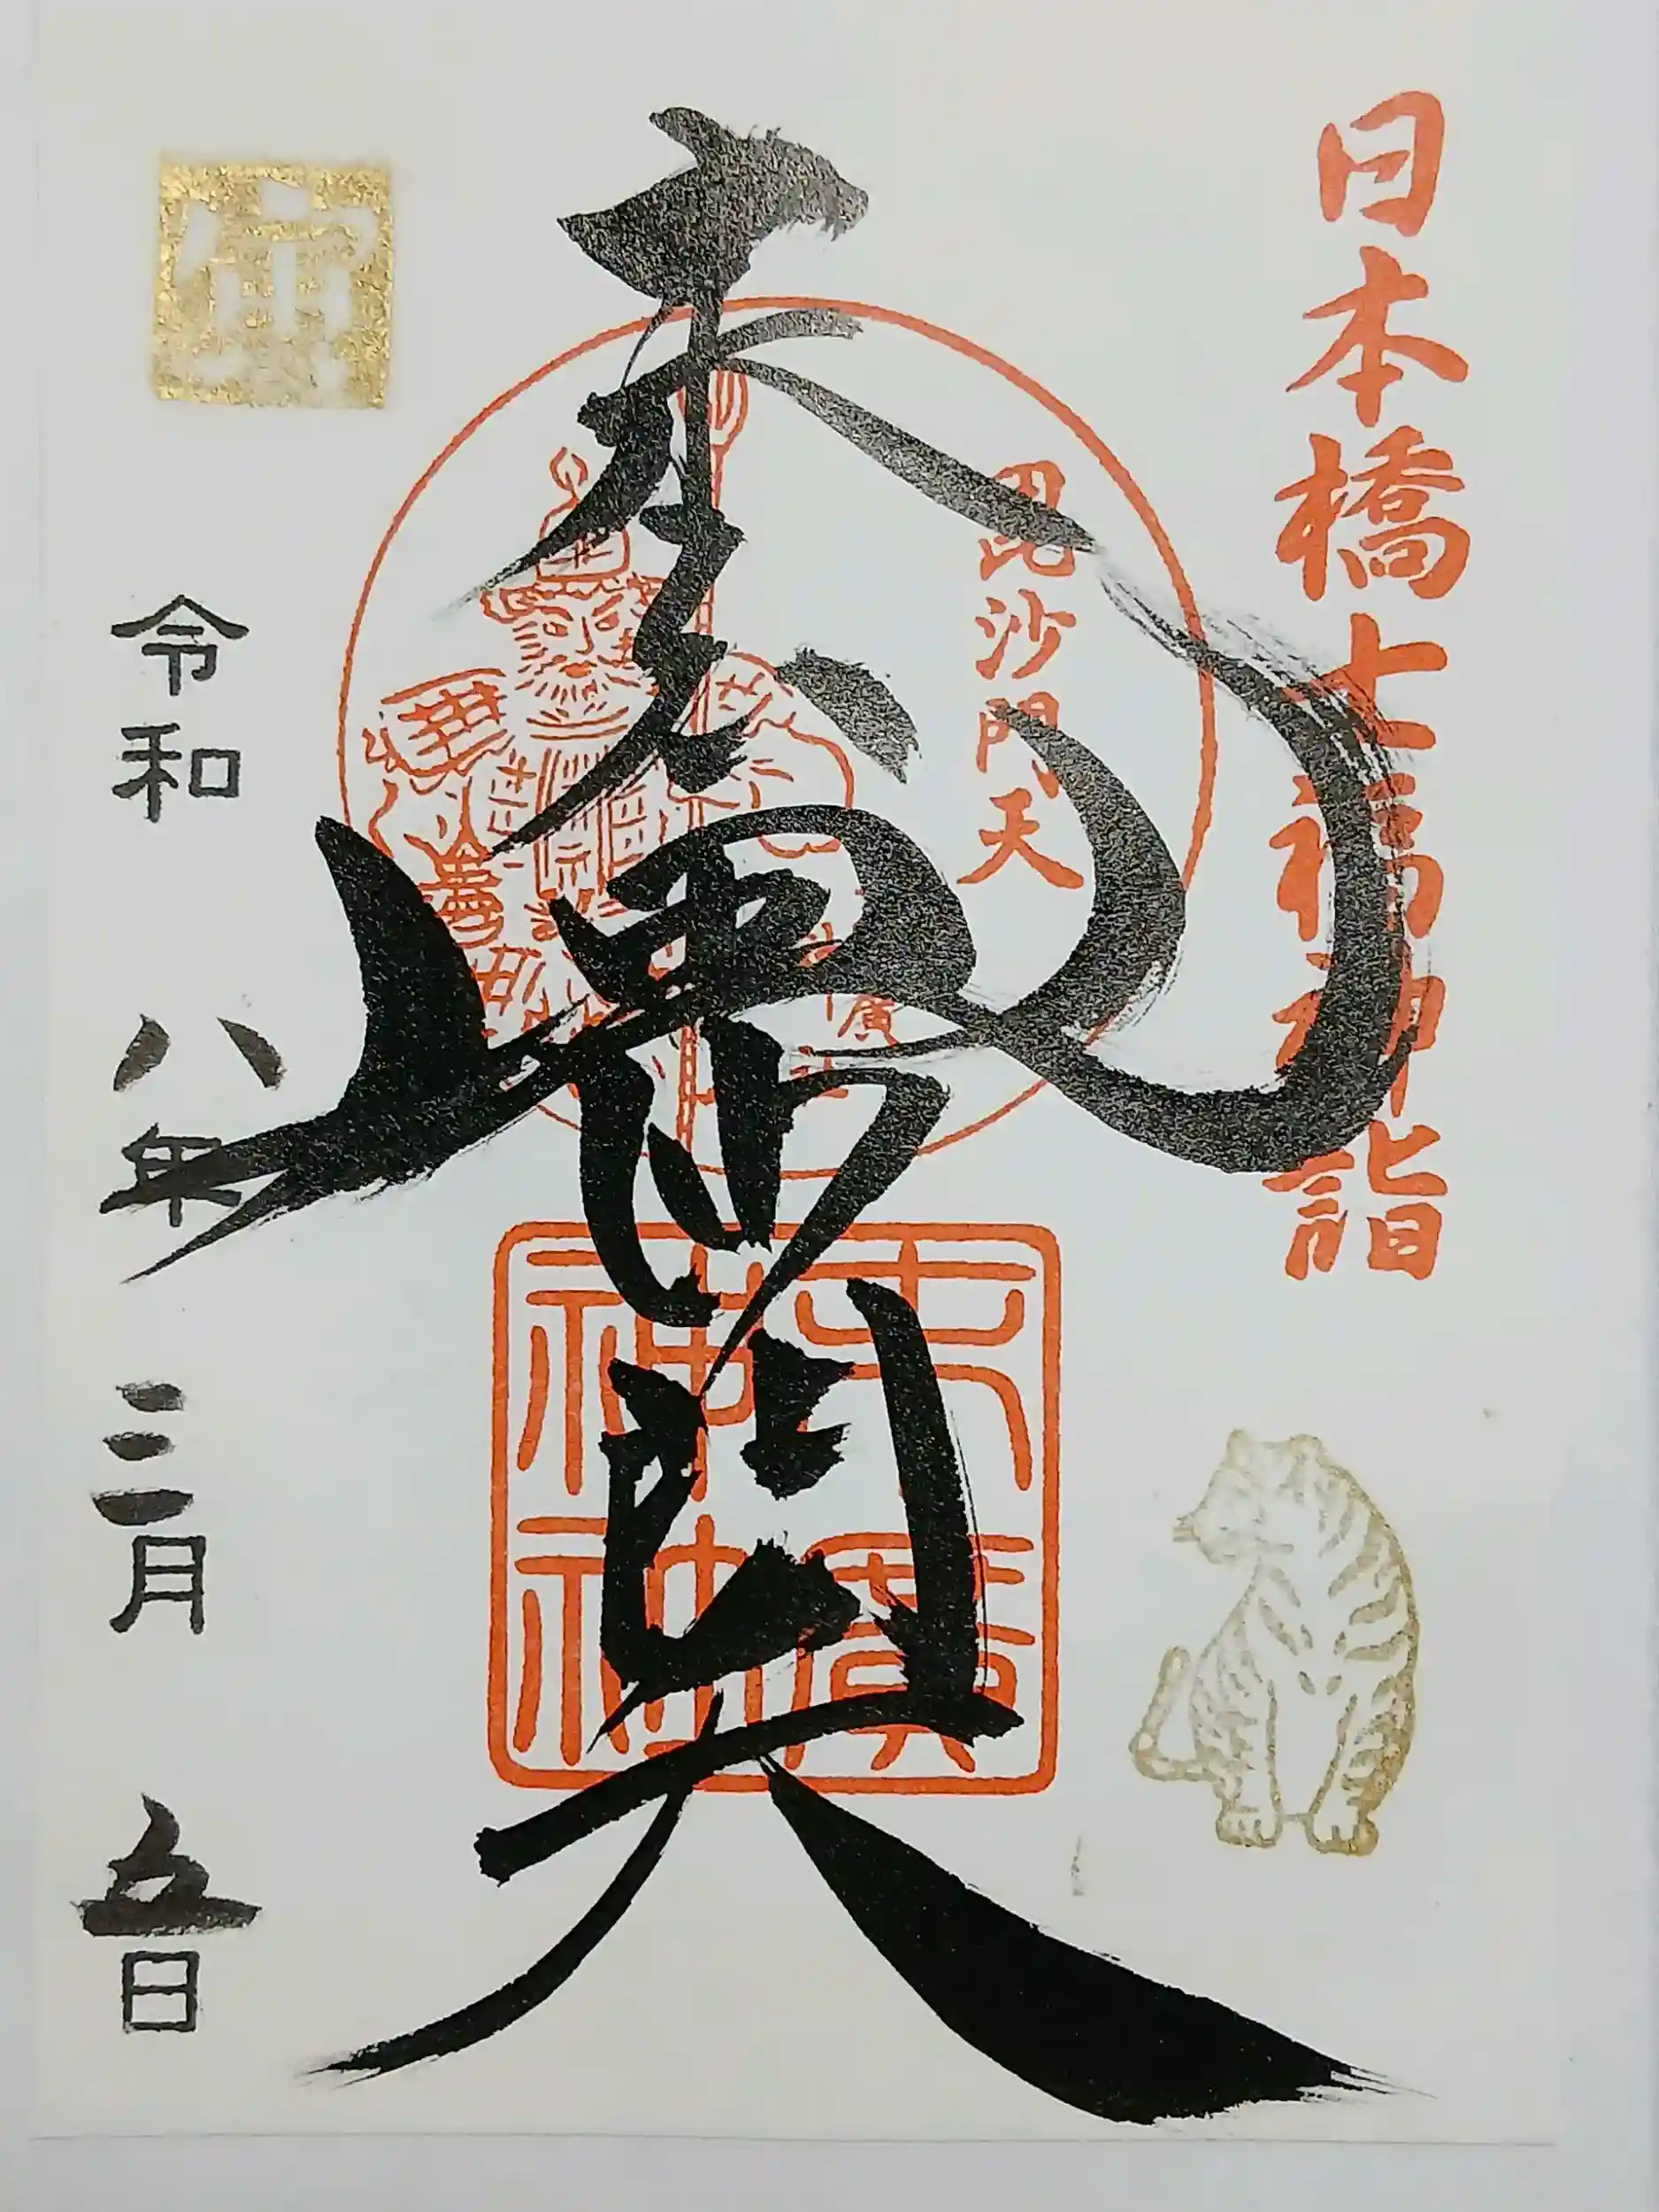 日本橋七福神詣
毘沙門天
末廣神社
末廣神社
毘沙門天
寅
令和八年三月五日